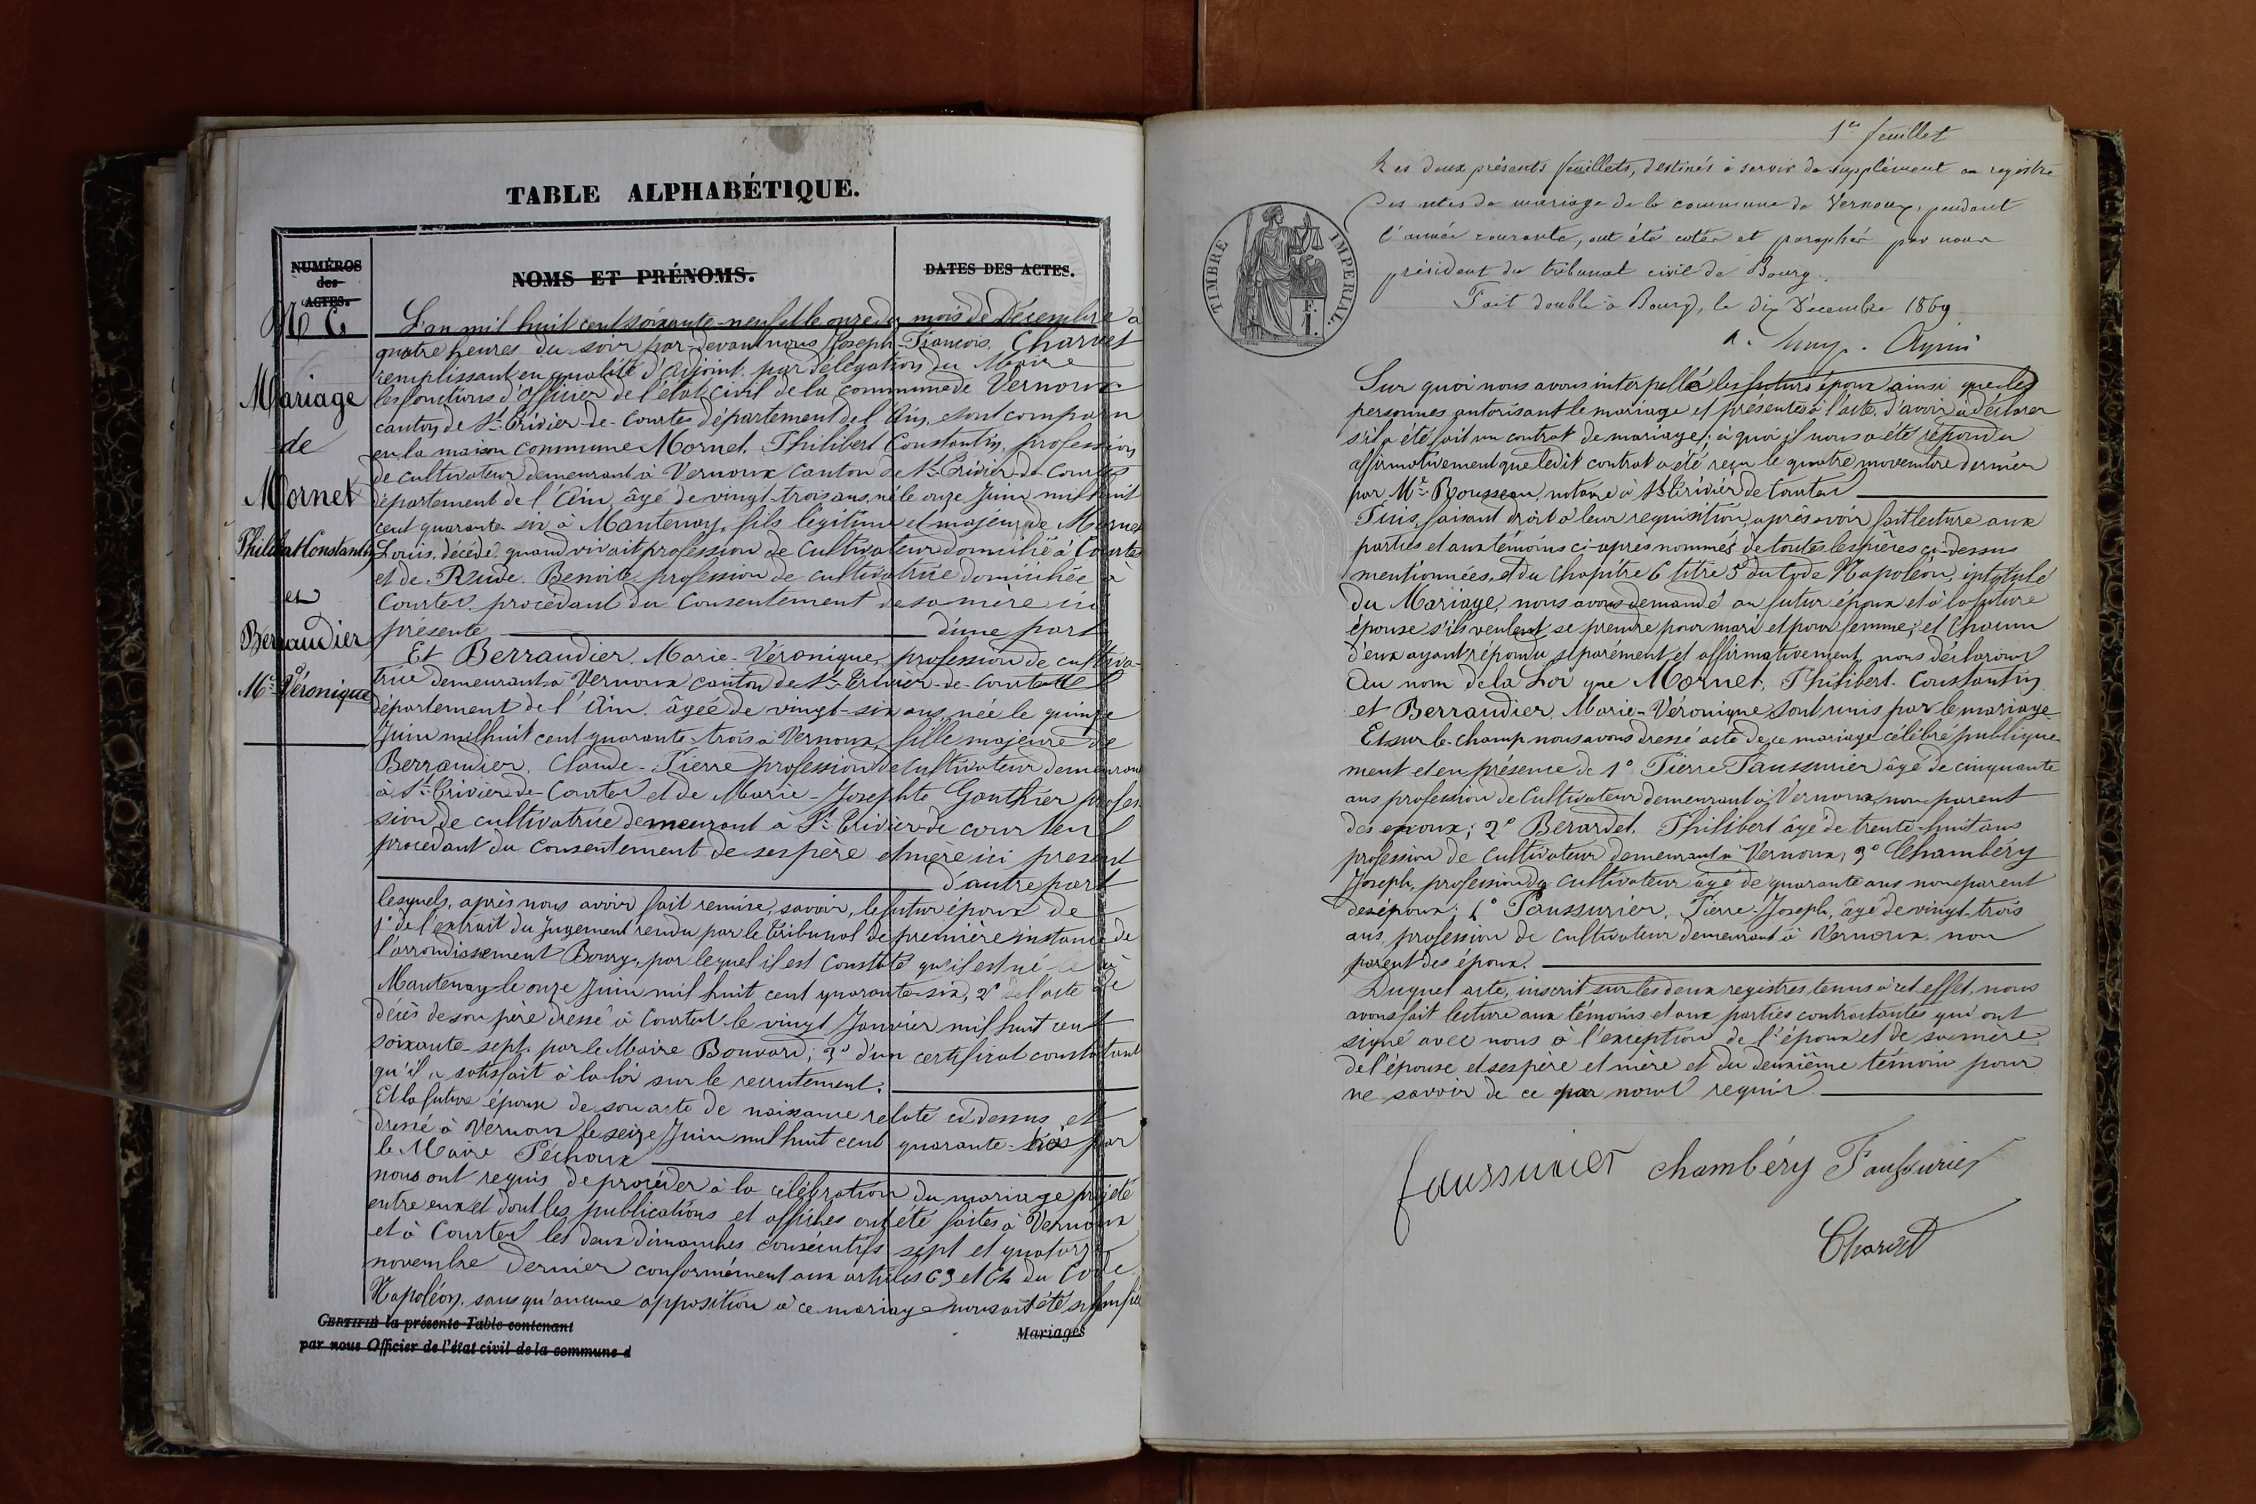 TABLE ALPHABÉTIQUE.
NUMÉROS
des
ACTES.
NOMS ET PRÉNOMS.
DATES DES ACTES.
N° 6
Mariage
de
Mornet
Philibert Constantin
et
Berraudier
Mie Véronique
L'an mil huit cent soixante-neuf et le onze du mois de Décembre à
quatre heures du soir par-devant nous Joseph-François Charvet
remplissant en qualité d'adjoint par délégation du Maire
les fonctions d'officier de l'état civil de la commune de Vernoux
canton de St Trivier-de-Courtes département de l'Ain, sont comparu
en la maison commune Mornet, Philibert Constantin, profession
de cultivateur demeurant à Vernoux canton de St Trivier-de-Courtes
département de l'Ain, âgé de vingt-trois ans, né le onze Juin mil huit
cent quarante six à Mantenay, fils légitime et majeur de Mornet
Louis, décédé quand vivait profession de cultivateur domicilié à Courtes
et de Rude Benoite profession de cultivatrice domiciliée à
Courtes procédant du consentement de sa mère ici
présente d'une part
Et Berraudier, Marie-Véronique, profession de cultiva-
trice demeurant à Vernoux canton de St Trivier-de-Courtes
département de l'Ain âgée de vingt-six ans née le quinze
Juin mil huit cent quarante-trois à Vernoux, fille majeure de
Berraudier, Claude-Pierre profession de cultivateur demeurant
à St Trivier-de-Courtes et de Marie-Josephte Gauthier profes-
sion de cultivatrice demeurant à St Trivier de courtes
procédant du consentement de ses père et mère ici present
d'autre part
lesquels, après nous avoir fait remise, savoir, le futur époux de
1° de l'extrait du Jugement rendu par le tribunal de première instance de
l'arrondissement Bourg, par lequel il est constaté qu'il est né à
Mantenay le onze Juin mil huit cent quarante-six, 2° de l'acte de
décès de son père dressé à Courtes le vingt Janvier mil huit cent
soixante-sept par le Maire Bouvard; 3° d'un certificat constatant
qu'il a satisfait à la loi sur le recrutement.
Et la future épouse de son acte de naissance relaté ci-dessus et
dressé à Vernoux le seize Juin mil huit cent quarante-trois par
le Maire Péchoux
nous ont requis de procéder à la célébration du mariage projeté
entre eux et dont les publications et affiches ont été faites à Vernoux
et à Courtes les deux dimanches consécutifs sept et quatorze
novembre dernier conformément aux articles 63 et 64 du Code
Napoléon, sans qu'aucune opposition à ce mariage nous ait été signifiée
CERTIFIÉ la présente Table contenant
Mariages
par nous Officier de l'état civil de la commune d
1er feuillet
Les deux présents feuillets, destinés à servir de supplément au registre
des actes de mariage de la commune de Vernoux, pendant
l'année courante, ont été cotés et paraphés par nous
président du tribunal civil de Bourg.
Fait double à Bourg, le dix Décembre 1869
TIMBRE IMPERIAL.
F.
1.
Sur quoi nous avons interpellé les futurs époux ainsi que les
personnes autorisant le mariage et présentes à l'acte, d'avoir à déclarer
s'il a été fait un contrat de mariage; à quoi il nous a été répondu
affirmativement que ledit contrat a été reçu le quatre novembre dernier
par Me Rousseau, notaire à St Trivier de Courtes
Puis, faisant droit à leur requisition, après avoir fait lecture aux
parties et aux témoins ci-après nommés de toutes les pièces ci-dessus
mentionnées et du chapitre 6 titre 5 du Code Napoléon, intitulé
du Mariage, nous avons demandé au futur époux et à la future
épouse s'ils veulent se prendre pour mari et pour femme; et chacun
d'eux ayant répondu séparément et affirmativement nous déclarons
Au nom de la Loi que Mornet, Philibert Constantin
et Berraudier, Marie-Véronique sont unis par le mariage.
Et sur-le-champ nous avons dressé acte de ce mariage célébré publique-
ment et en présence de 1° Pierre Faussurier âgé de cinquante
ans profession de cultivateur demeurant à Vernoux, non parent
des epoux; 2° Berardet, Philibert âgé de trente-huit ans
profession de cultivateur demeurant à Vernoux; 3° Chambéry
Joseph, profession de cultivateur âgé de quarante ans non parent
des époux; 4° Faussurier, Pierre-Joseph, âgé de vingt-trois
ans, profession de cultivateur demeurant à Vernoux non
parent des époux.
Duquel acte, inscrit sur les deux registres tenus à cet effet, nous
avons fait lecture aux témoins et aux parties contractantes qui ont
signé avec nous à l'exception de l'époux et de sa mère,
de l'épouse et ses père et mère et du deuxième témoin pour
ne savoir de ce par nous requis
faussurier chambéry Faussurier
Charvet